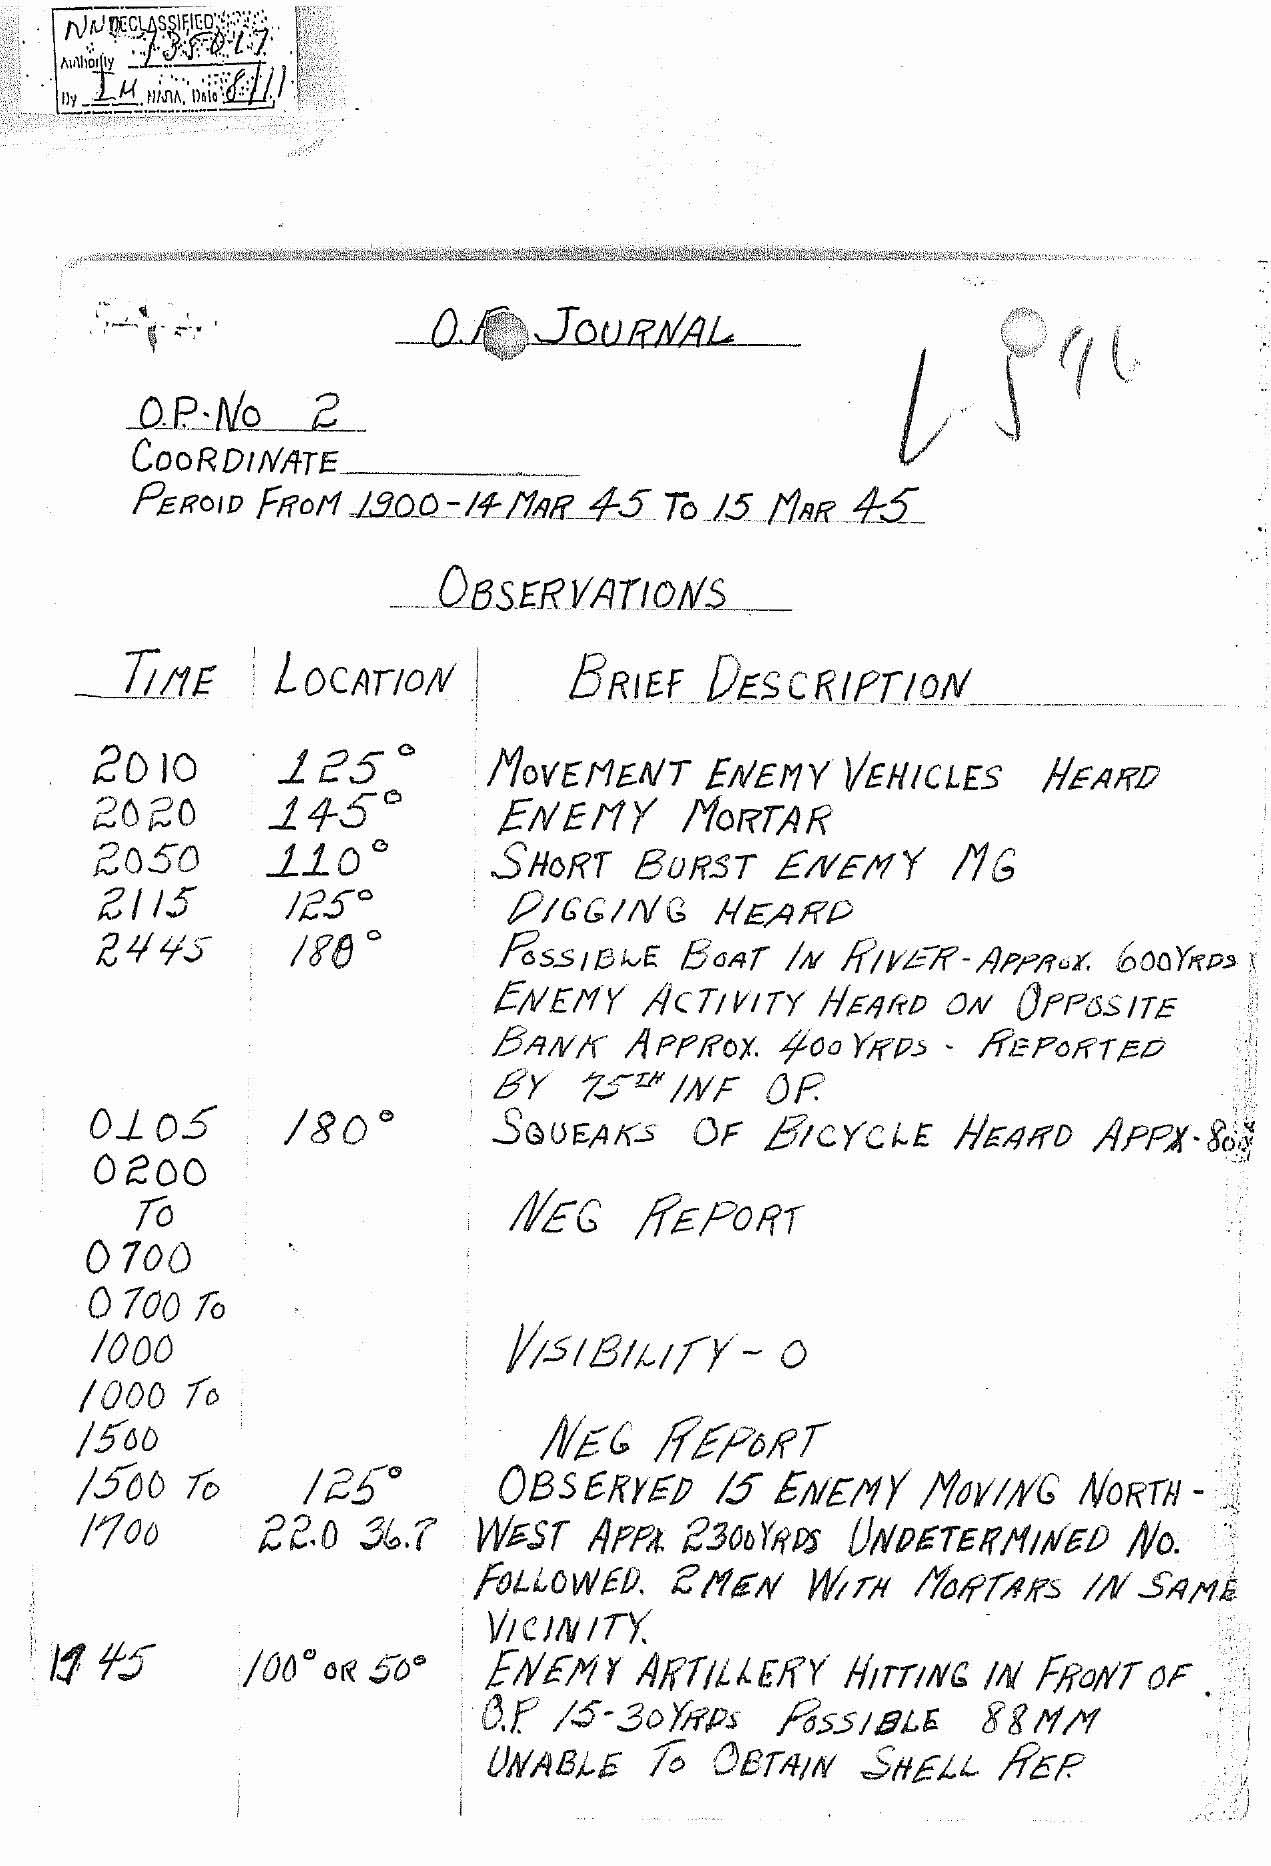 NND DECLASSIFIED
Authority 735017
By IH NARA, Date 8/11
O.P. JOURNAL
O.P. No 2
COORDINATE
PEROID FROM 1900-14 MAR 45 TO 15 MAR 45
OBSERVATIONS
TIME LOCATION BRIEF DESCRIPTION
2010 125° MOVEMENT ENEMY VEHICLES HEARD
2020 145° ENEMY MORTAR
2050 110° SHORT BURST ENEMY MG
2115 125° DIGGING HEARD
2445 180° POSSIBLE BOAT IN RIVER-APPROX. 600YRDS
ENEMY ACTIVITY HEARD ON OPPOSITE
BANK APPROX. 400YRDS - REPORTED
BY 75TH INF OP.
0105 180° SQUEAKS OF BICYCLE HEARD APPX-800
0200
TO NEG REPORT
0700
0700 TO
1000 VISIBILITY - 0
1000 TO
1500 NEG REPORT
1500 TO 125° OBSERVED 15 ENEMY MOVING NORTH-
1700 22.0 36.7 WEST APPX. 2300YRDS UNDETERMINED NO.
FOLLOWED. 2 MEN WITH MORTARS IN SAME
VICINITY.
1945 100° OR 50° ENEMY ARTILLERY HITTING IN FRONT OF
O.P. 15-30YRDS POSSIBLE 88MM
UNABLE TO OBTAIN SHELL REP.